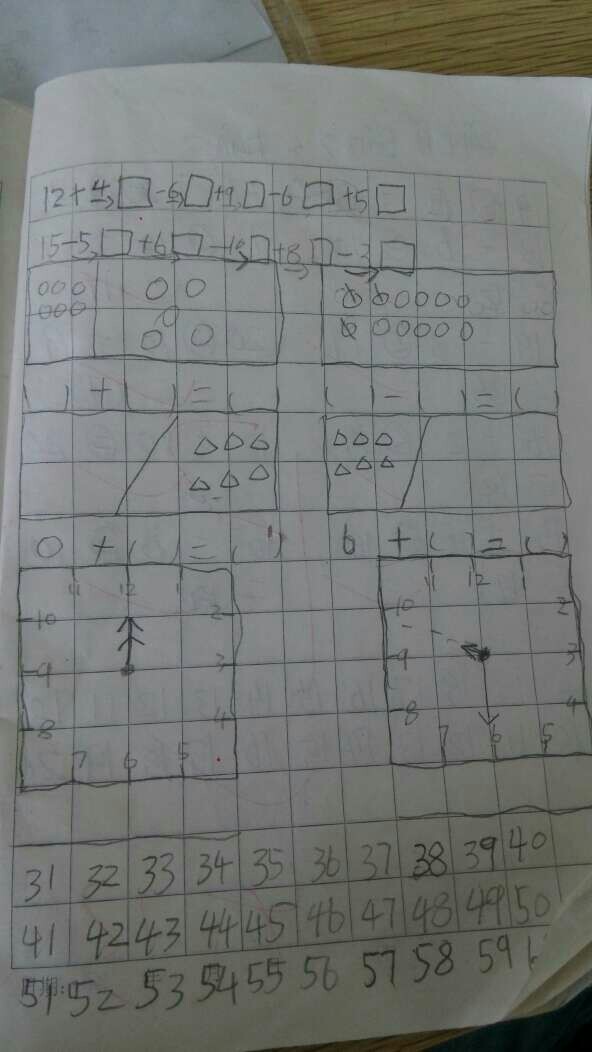 12+4,□-6,□+9,□-6□+5□
15-5,□+6□-10□+8□-3□
( ) + ( ) = ( ) ( ) - ( ) = ( )
0 + ( ) = ( ) 6 + ( ) = ( )
11 12 1 11 12
10 2 10 2
9 3 9 3
8 4 8 4
7 6 5 7 6 5
31 32 33 34 35 36 37 38 39 40
41 42 43 44 45 46 47 48 49 50
51 52 53 54 55 56 57 58 59